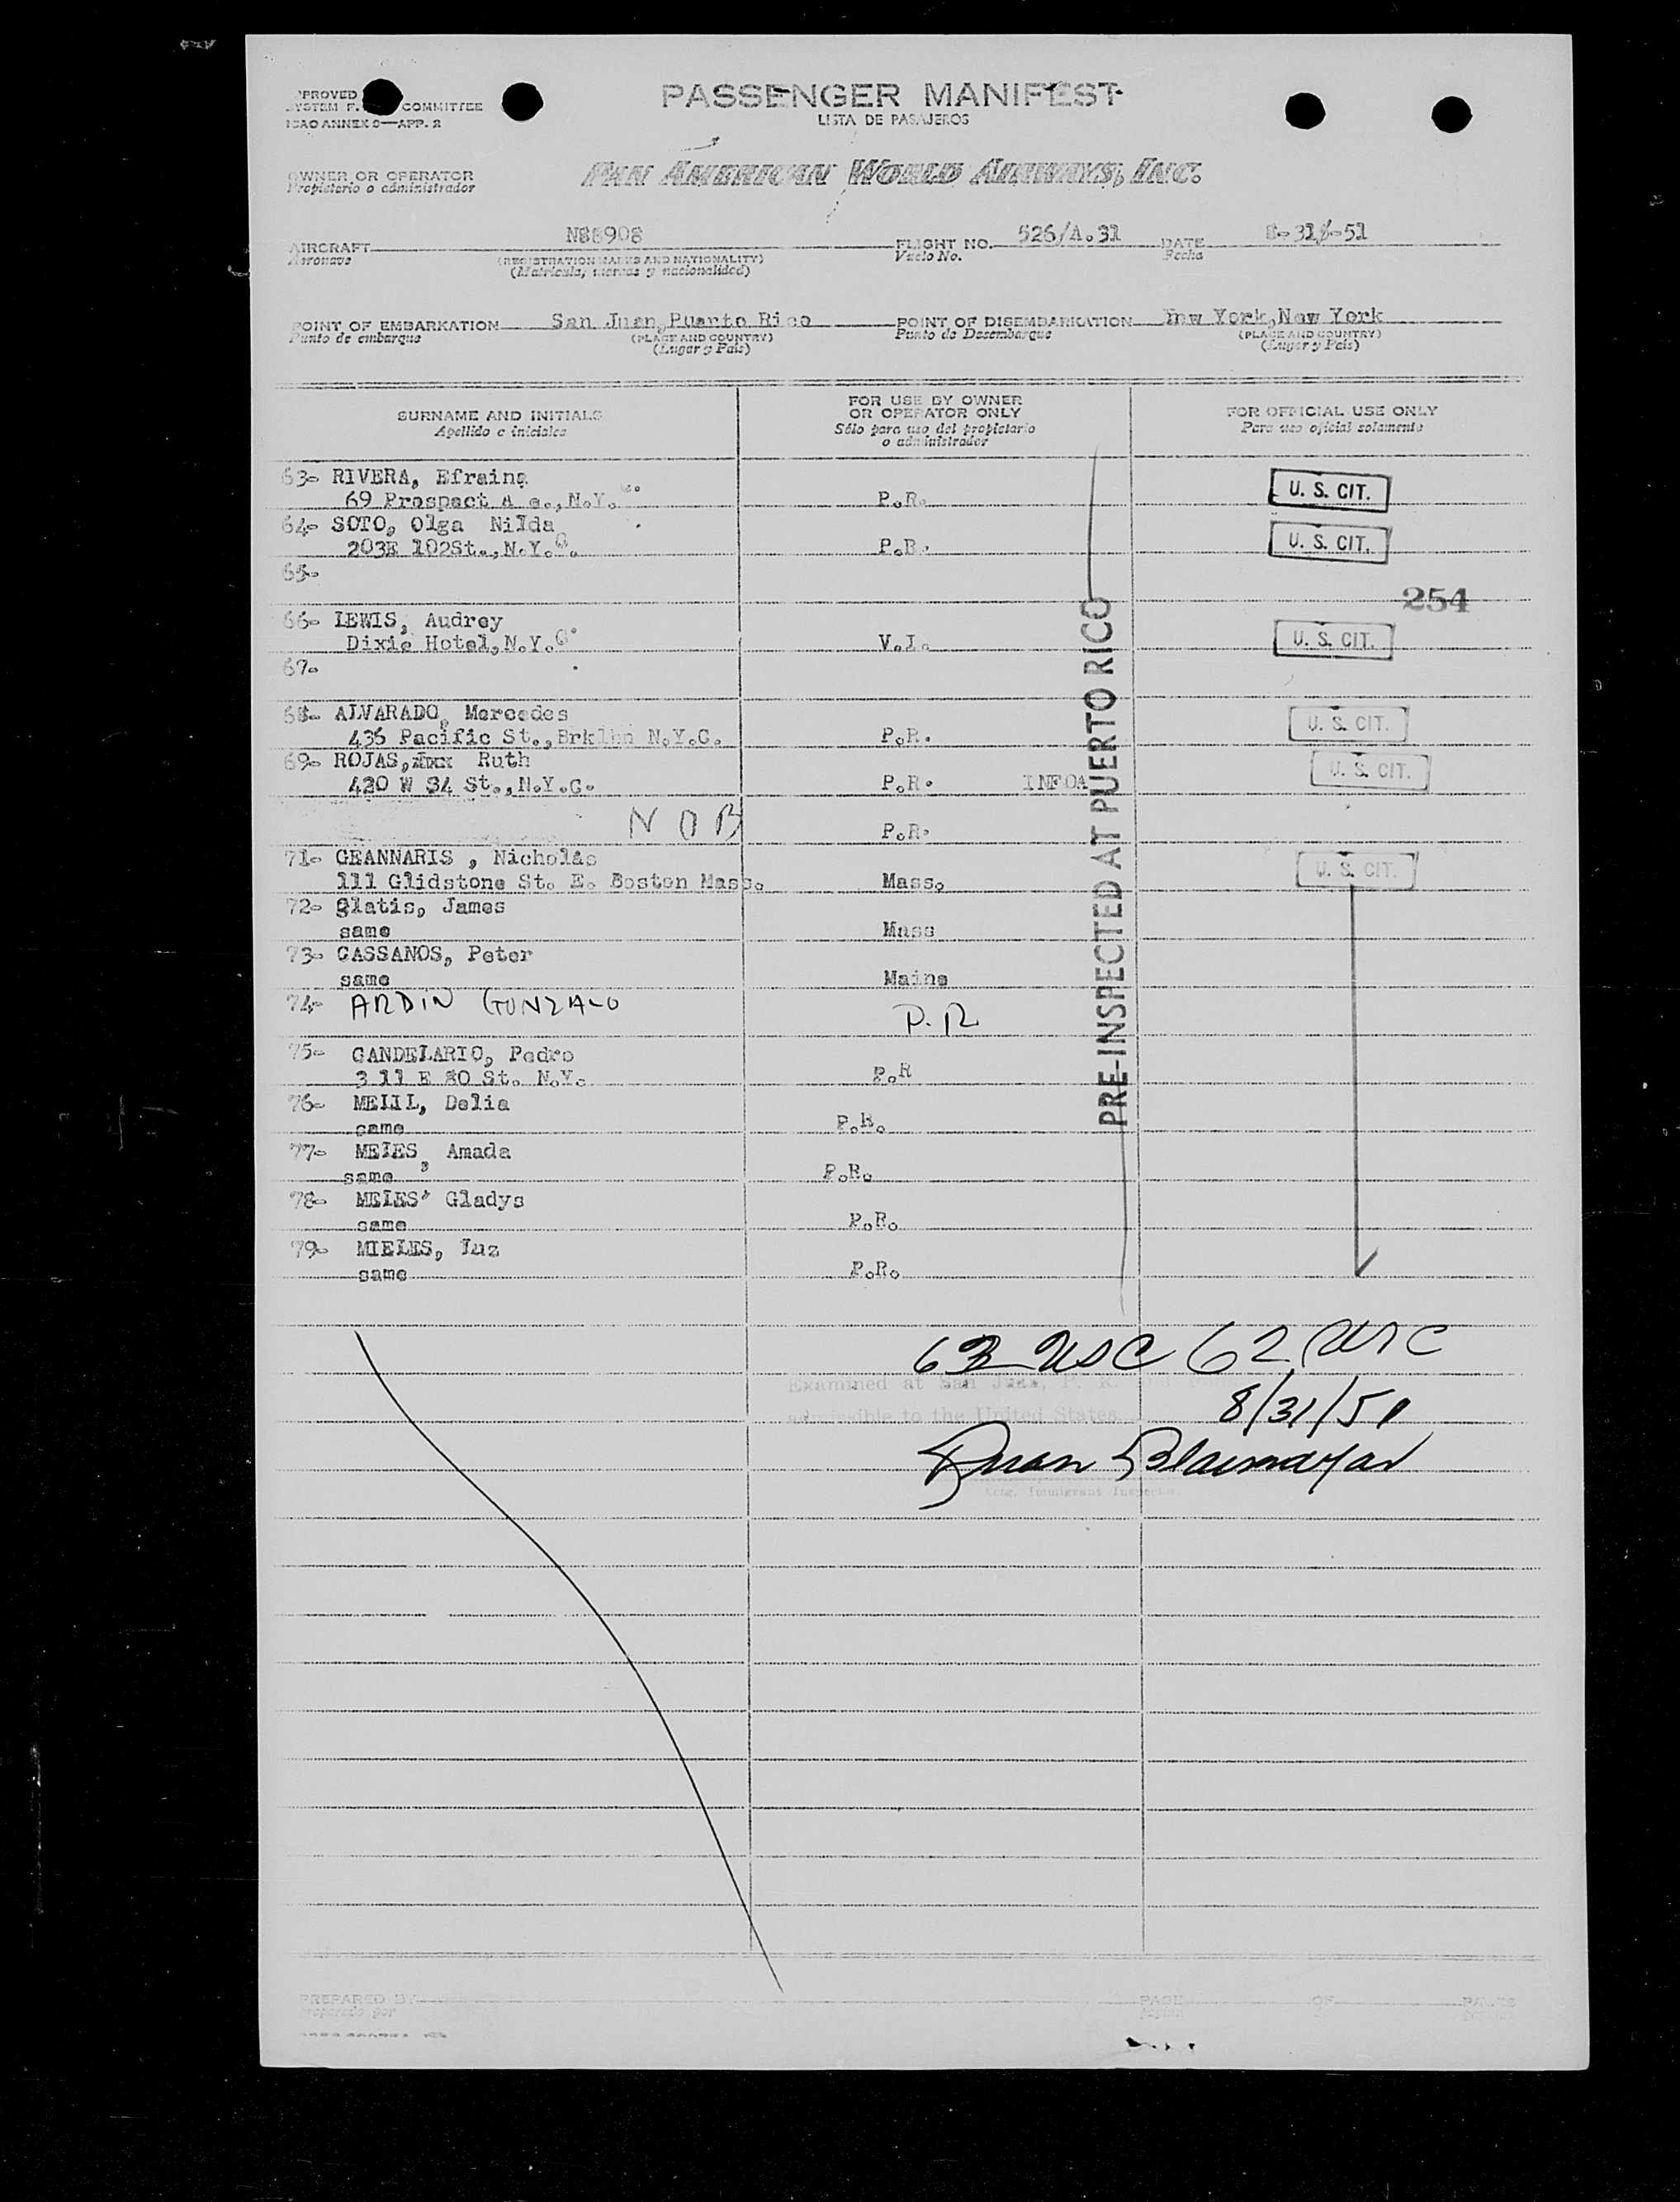 PASSENGER MANIFEST
LISTA DE PASAJEROS
COMMITTEE
ICAO ANNEX 9—APP. 2
OWNER OR OPERATOR
Propietario o administrador
PAN AMERICAN WORLD AIRWAYS, INC.
AIRCRAFT N88908 FLIGHT NO. 526/A.31 DATE 8-31-51
Aeronave (REGISTRATION MARKS AND NATIONALITY) Vuelo No. Fecha
(Matrícula, marcas y nacionalidad)
POINT OF EMBARKATION San Juan, Puerto Rico POINT OF DISEMBARKATION York, New York
Punto de embarque (PLACE AND COUNTRY) Punto de Desembarque (PLACE AND COUNTRY)
(Lugar y País) (Lugar y País)
SURNAME AND INITIALS FOR USE BY OWNER OR OPERATOR ONLY FOR OFFICIAL USE ONLY
Apellido e iniciales Sólo para uso del propietario o administrador Para uso oficial solamente
63- RIVERA, Efraing
69 Prospect A e., N.Y. P.R. U. S. CIT.
64- SOTO, Olga Nilda
203E 102St., N.Y.C. P.R. U. S. CIT.
65-
254
66- LEWIS, Audrey
Dixie Hotel, N.Y.C. V.I. U. S. CIT.
67-
68- ALVARADO, Mercedes
436 Pacific St., Brklyn N.Y.C. P.R. U. S. CIT.
69- ROJAS, Ruth
420 W 34 St., N.Y.C. P.R. INFOA U. S. CIT.
N O B P.R.
71- GEANNARIS , Nicholas
111 Glidstone St. E. Boston Mass. Mass. U. S. CIT.
72- Glatis, James
same Mass
73- CASSANOS, Peter
same Maine
74- ARDIN GONZALO P.R
75- CANDELARIO, Pedro
3 11 E 80 St. N.Y. P.R
76- MELIL, Delia
same P.R.
77- MEIES, Amada
same P.R.
78- MEIES, Gladys
same P.R.
79- MIELES, Luz
same P.R.
PRE-INSPECTED AT PUERTO RICO
63 USC 62
Examined at San Juan, P. R.
8/31/51
admissible to the United States
Juan
Actg. Immigrant Inspector
PREPARED BY PAGE OF PAGES